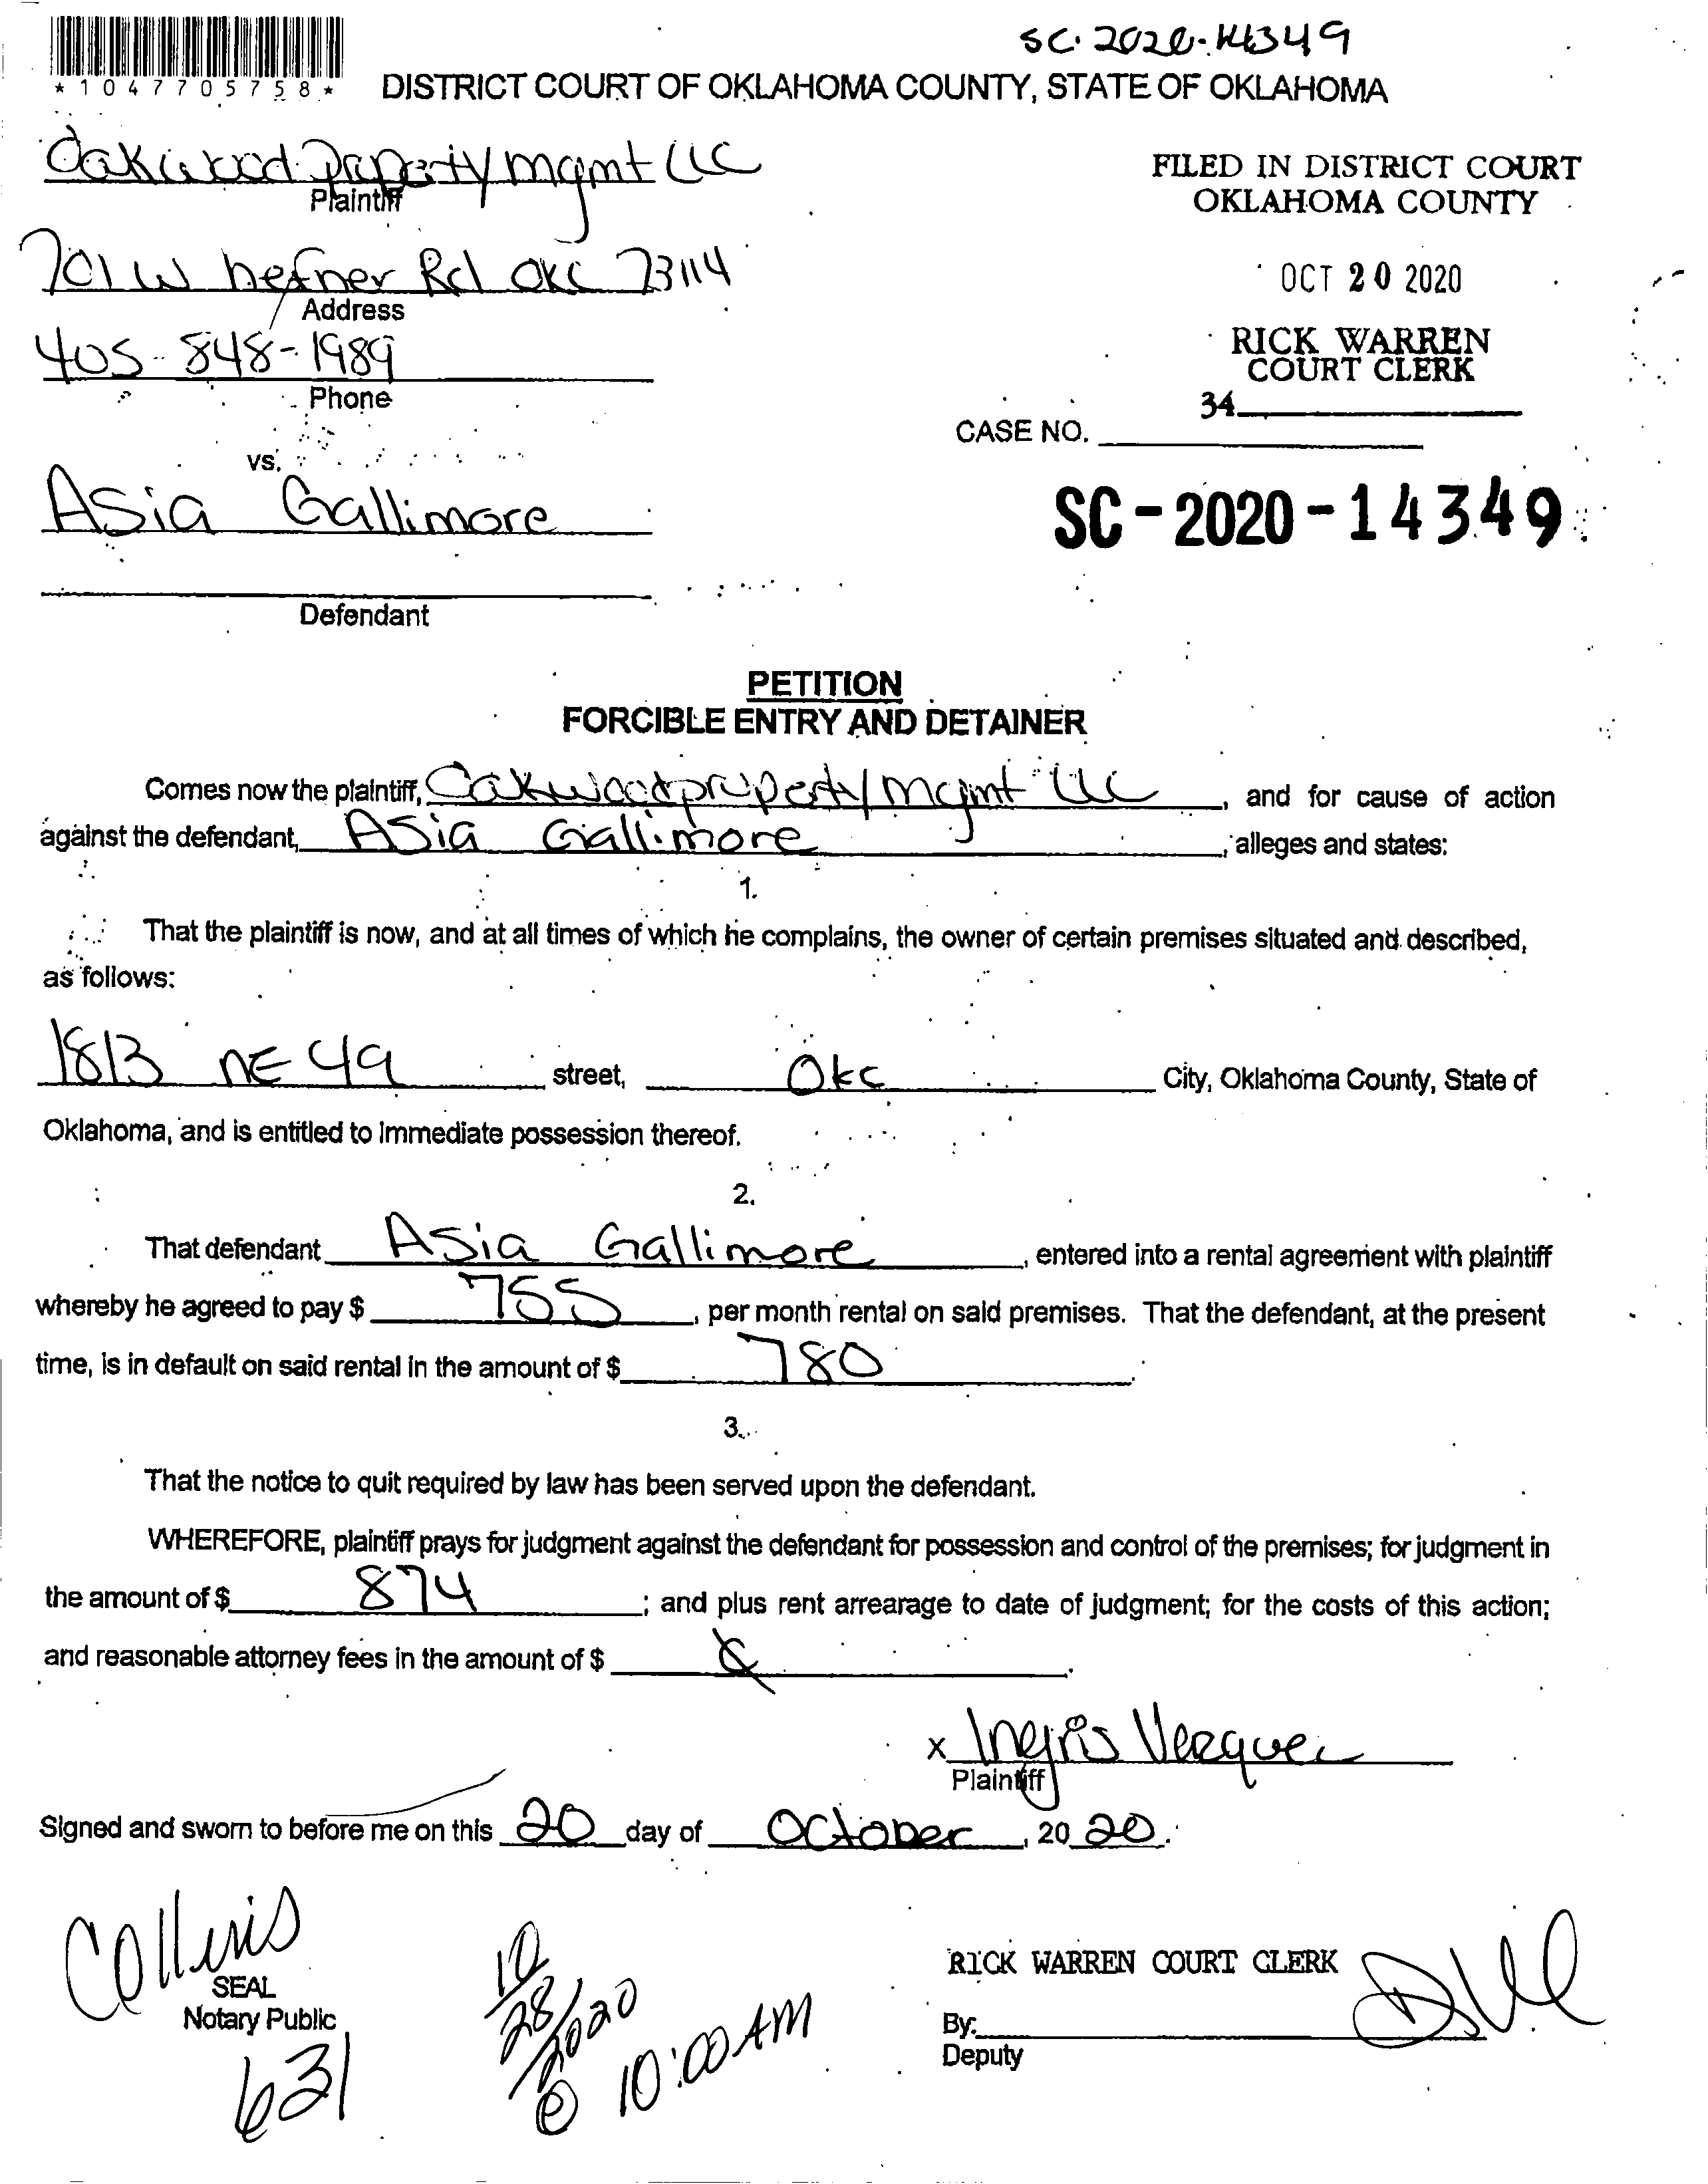 SC-2020-14349
*1047705758*
DISTRICT COURT OF OKLAHOMA COUNTY, STATE OF OKLAHOMA
Oakwood Property mgmt LLC
Plaintiff
FILED IN DISTRICT COURT
OKLAHOMA COUNTY
701 W hefner Rd OKC 73114
Address
OCT 20 2020
405-848-1989
Phone
RICK WARREN
COURT CLERK
34
CASE NO.
vs.
Asia Gallimore
SC-2020-14349
Defendant
PETITION
FORCIBLE ENTRY AND DETAINER
Comes now the plaintiff, Oakwood property mgmt LLC, and for cause of action
against the defendant, Asia Gallimore, alleges and states:
1.
That the plaintiff is now, and at all times of which he complains, the owner of certain premises situated and described,
as follows:
1813 NE 49 street, Okc City, Oklahoma County, State of
Oklahoma, and is entitled to immediate possession thereof.
2.
That defendant Asia Gallimore, entered into a rental agreement with plaintiff
whereby he agreed to pay $ 755, per month rental on said premises. That the defendant, at the present
time, is in default on said rental in the amount of $ 780.
3.
That the notice to quit required by law has been served upon the defendant.
WHEREFORE, plaintiff prays for judgment against the defendant for possession and control of the premises; for judgment in
the amount of $ 874; and plus rent arrearage to date of judgment; for the costs of this action;
and reasonable attorney fees in the amount of $
x
Plaintiff
Signed and sworn to before me on this 20 day of October, 2020.
Collins
SEAL
Notary Public
631
10/28/2020
@ 10:00 AM
RICK WARREN COURT CLERK
By:
Deputy